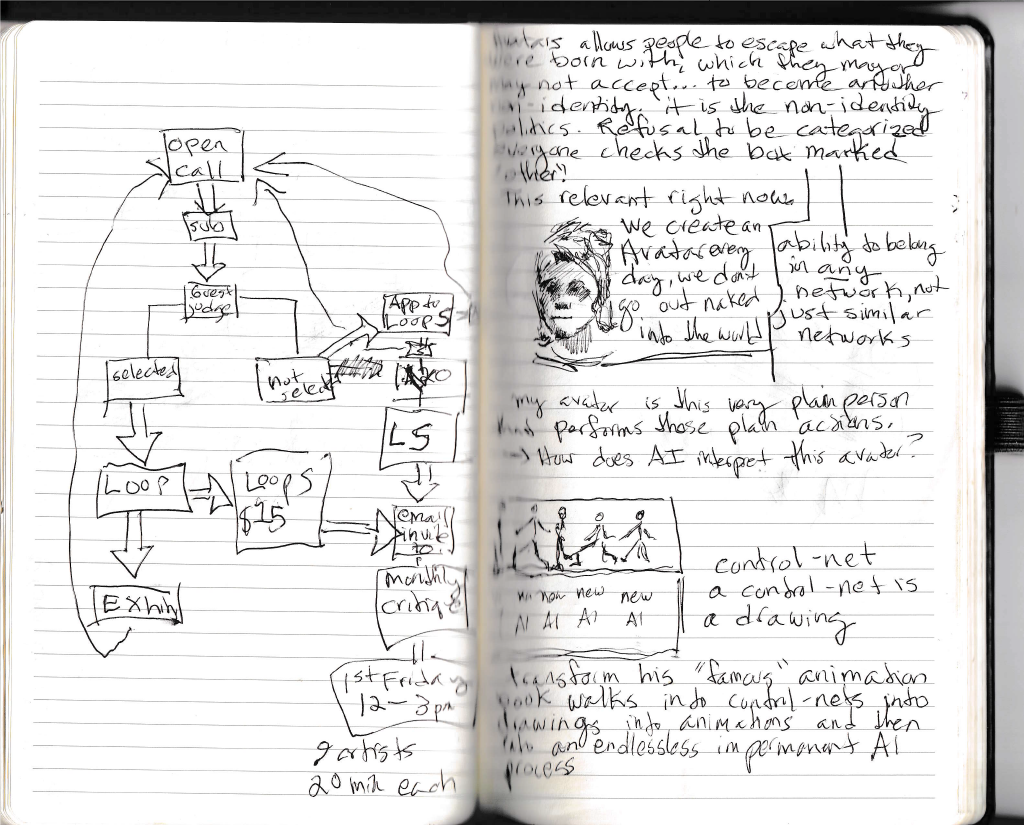 open
call
sub
Guest
judge
App to
Loops
selected
not
selected
LS
LOOP
Loops
$15
email
invite
to
Exhib
monthly
critique
1st Friday
12-3pm
9 artists
20 min each
allows people to escape what they
were born with, which they may or
may not accept... to become another
-identity. it is the non-identity
politics. Refusal to be categorized
everyone checks the box marked
other!
This relevant right now.
We create an
Avatar every
day, we don't
go out naked
into the world
ability to belong
in any
network, not
just similar
networks
my avatar is this very plain person
that performs those plain actions.
→ How does AI interpret this avatar?
new new
AI AI AI AI
control-net
a control-net is
a drawing
transform his "famous" animation
book walks into control-nets into
drawings into animations and then
into an endlessless impermanent AI
process